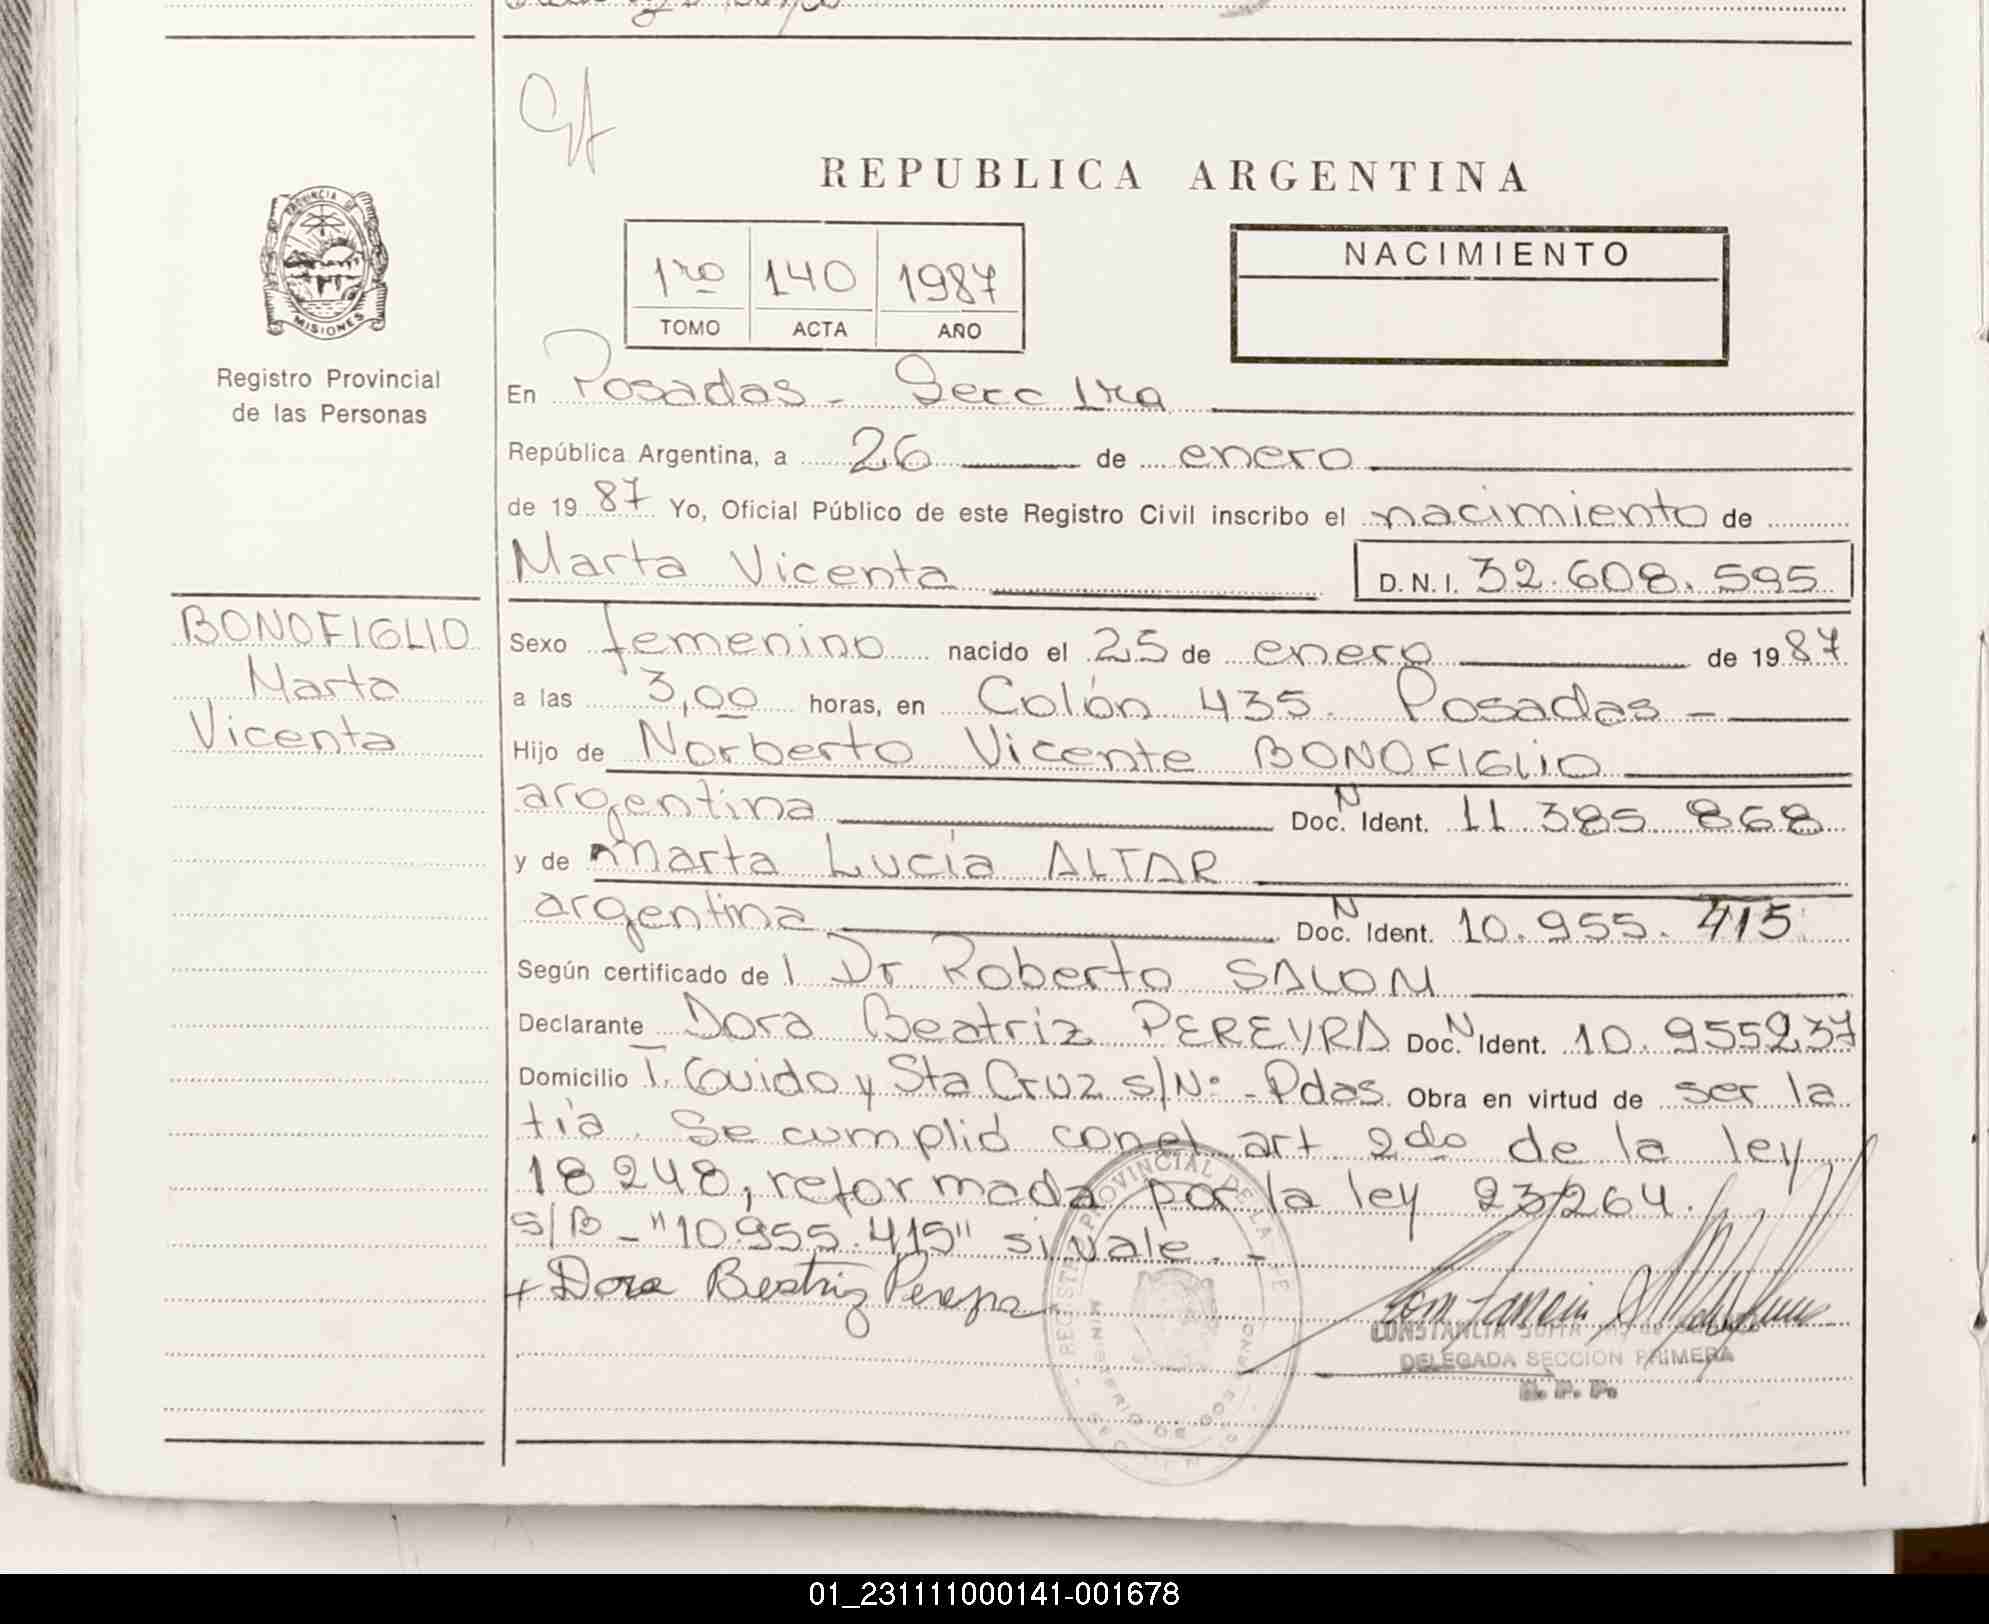 REPUBLICA ARGENTINA
PROVINCIA DE MISIONES
Registro Provincial
de las Personas
1ro 140 1987
TOMO ACTA AÑO
NACIMIENTO
En Posadas - Secc 1ra
República Argentina, a 26 de enero
de 1987 Yo, Oficial Público de este Registro Civil inscribo el nacimiento de
Marta Vicenta D.N.I. 32.608.595
BONOFIGLIO
Marta
Vicenta
Sexo femenino nacido el 25 de enero de 1987
a las 3,00 horas, en Colón 435. Posadas -
Hijo de Norberto Vicente BONOFIGLIO
argentina Doc. N Ident. 11.385 868
y de Marta Lucía ALTAR
argentina Doc. N Ident. 10.955.415
Según certificado de l Dr Roberto SALOM
Declarante Dora Beatriz PEREYRA Doc. N Ident. 10.955237
Domicilio T. Guido y Sta Cruz s/Nº - Pdas. Obra en virtud de ser la
tía. Se cumplió con el art 2do de la ley
18248, reformada por la ley 23264.
S/B - "10.955.415" si vale. -
+ Dora Beatriz Pereyra
REGISTRO PROVINCIAL DE LAS
MINISTERIO DE GOBIERNO
CONSTANCIA SOFIA
DELEGADA SECCION PRIMERA
R. P. P.
01_231111000141-001678